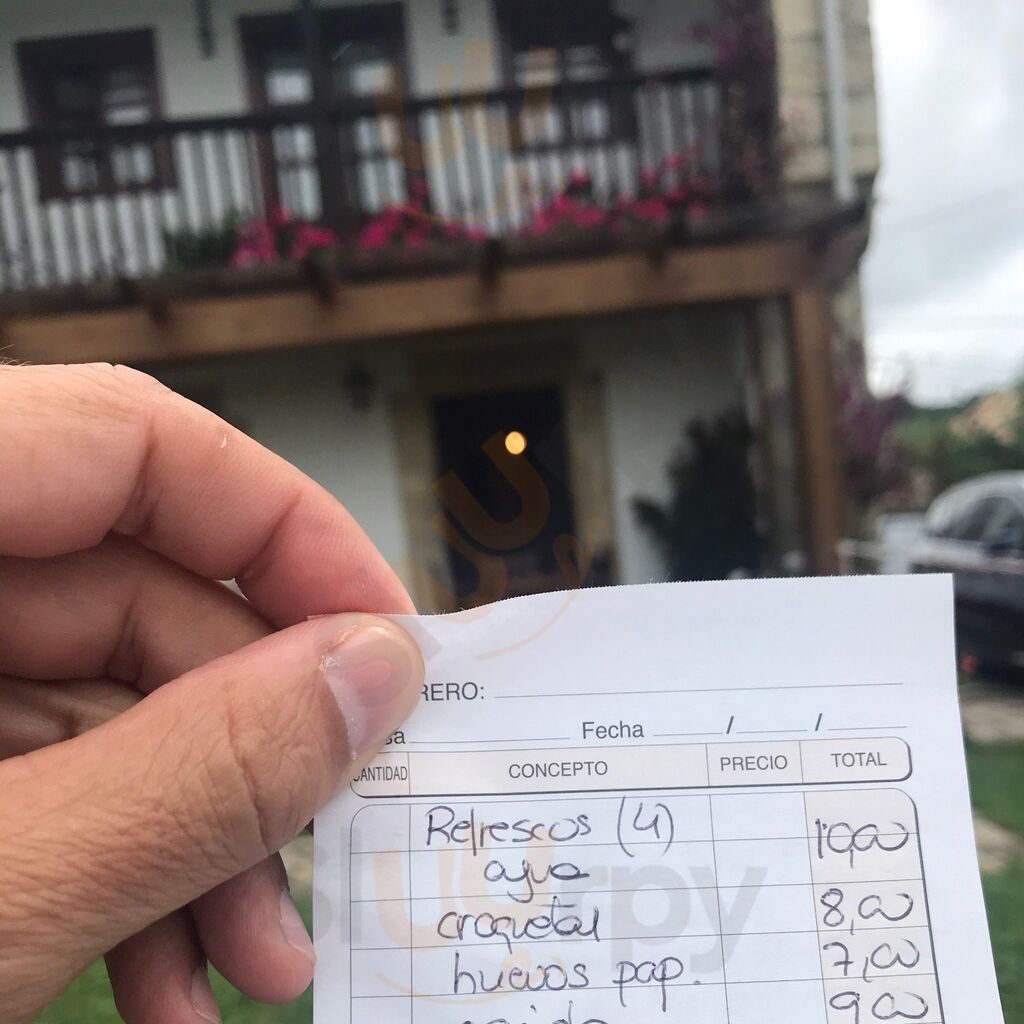 RERO:
sa Fecha / /
CANTIDAD CONCEPTO PRECIO TOTAL
Refrescos (4) 10,00
agua
croquetas 8,00
huevos pap. 7,00
9,00
Slurpy